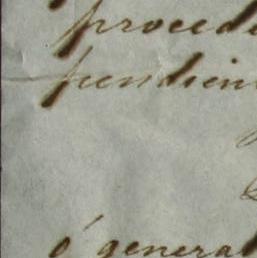 procede
pendien
ó general